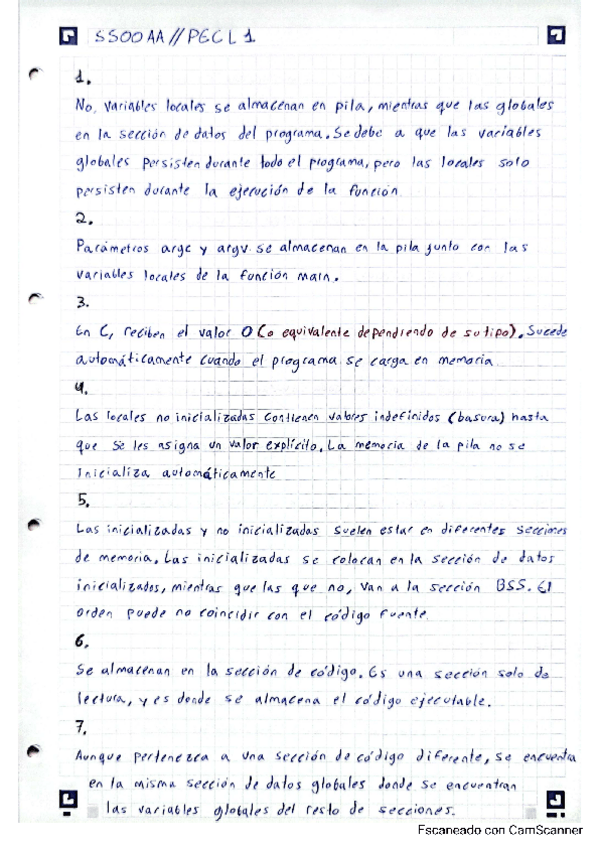 SSOOAA // PECL1
1.
No, variables locales se almacenan en pila, mientras que las globales
en la sección de datos del programa. Se debe a que las variables
globales persisten durante todo el programa, pero las locales solo
persisten durante la ejecución de la función.
2.
Parámetros argc y argv se almacenan en la pila junto con las
variables locales de la función main.
3.
En C, reciben el valor 0 (o equivalente dependiendo de su tipo). Sucede
automáticamente cuando el programa se carga en memoria.
4.
Las locales no inicializadas contienen valores indefinidos (basura) hasta
que se les asigna un valor explícito. La memoria de la pila no se
inicializa automáticamente
5.
Las inicializadas y no inicializadas suelen estar en diferentes secciones
de memoria. Las inicializadas se colocan en la sección de datos
inicializados, mientras que las que no, van a la sección BSS. El
orden puede no coincidir con el código fuente.
6.
Se almacenan en la sección de código. Es una sección solo de
lectura, y es donde se almacena el código ejecutable.
7.
Aunque pertenezca a una sección de código diferente, se encuentra
en la misma sección de datos globales donde se encuentran
las variables globales del resto de secciones.
Escaneado con CamScanner